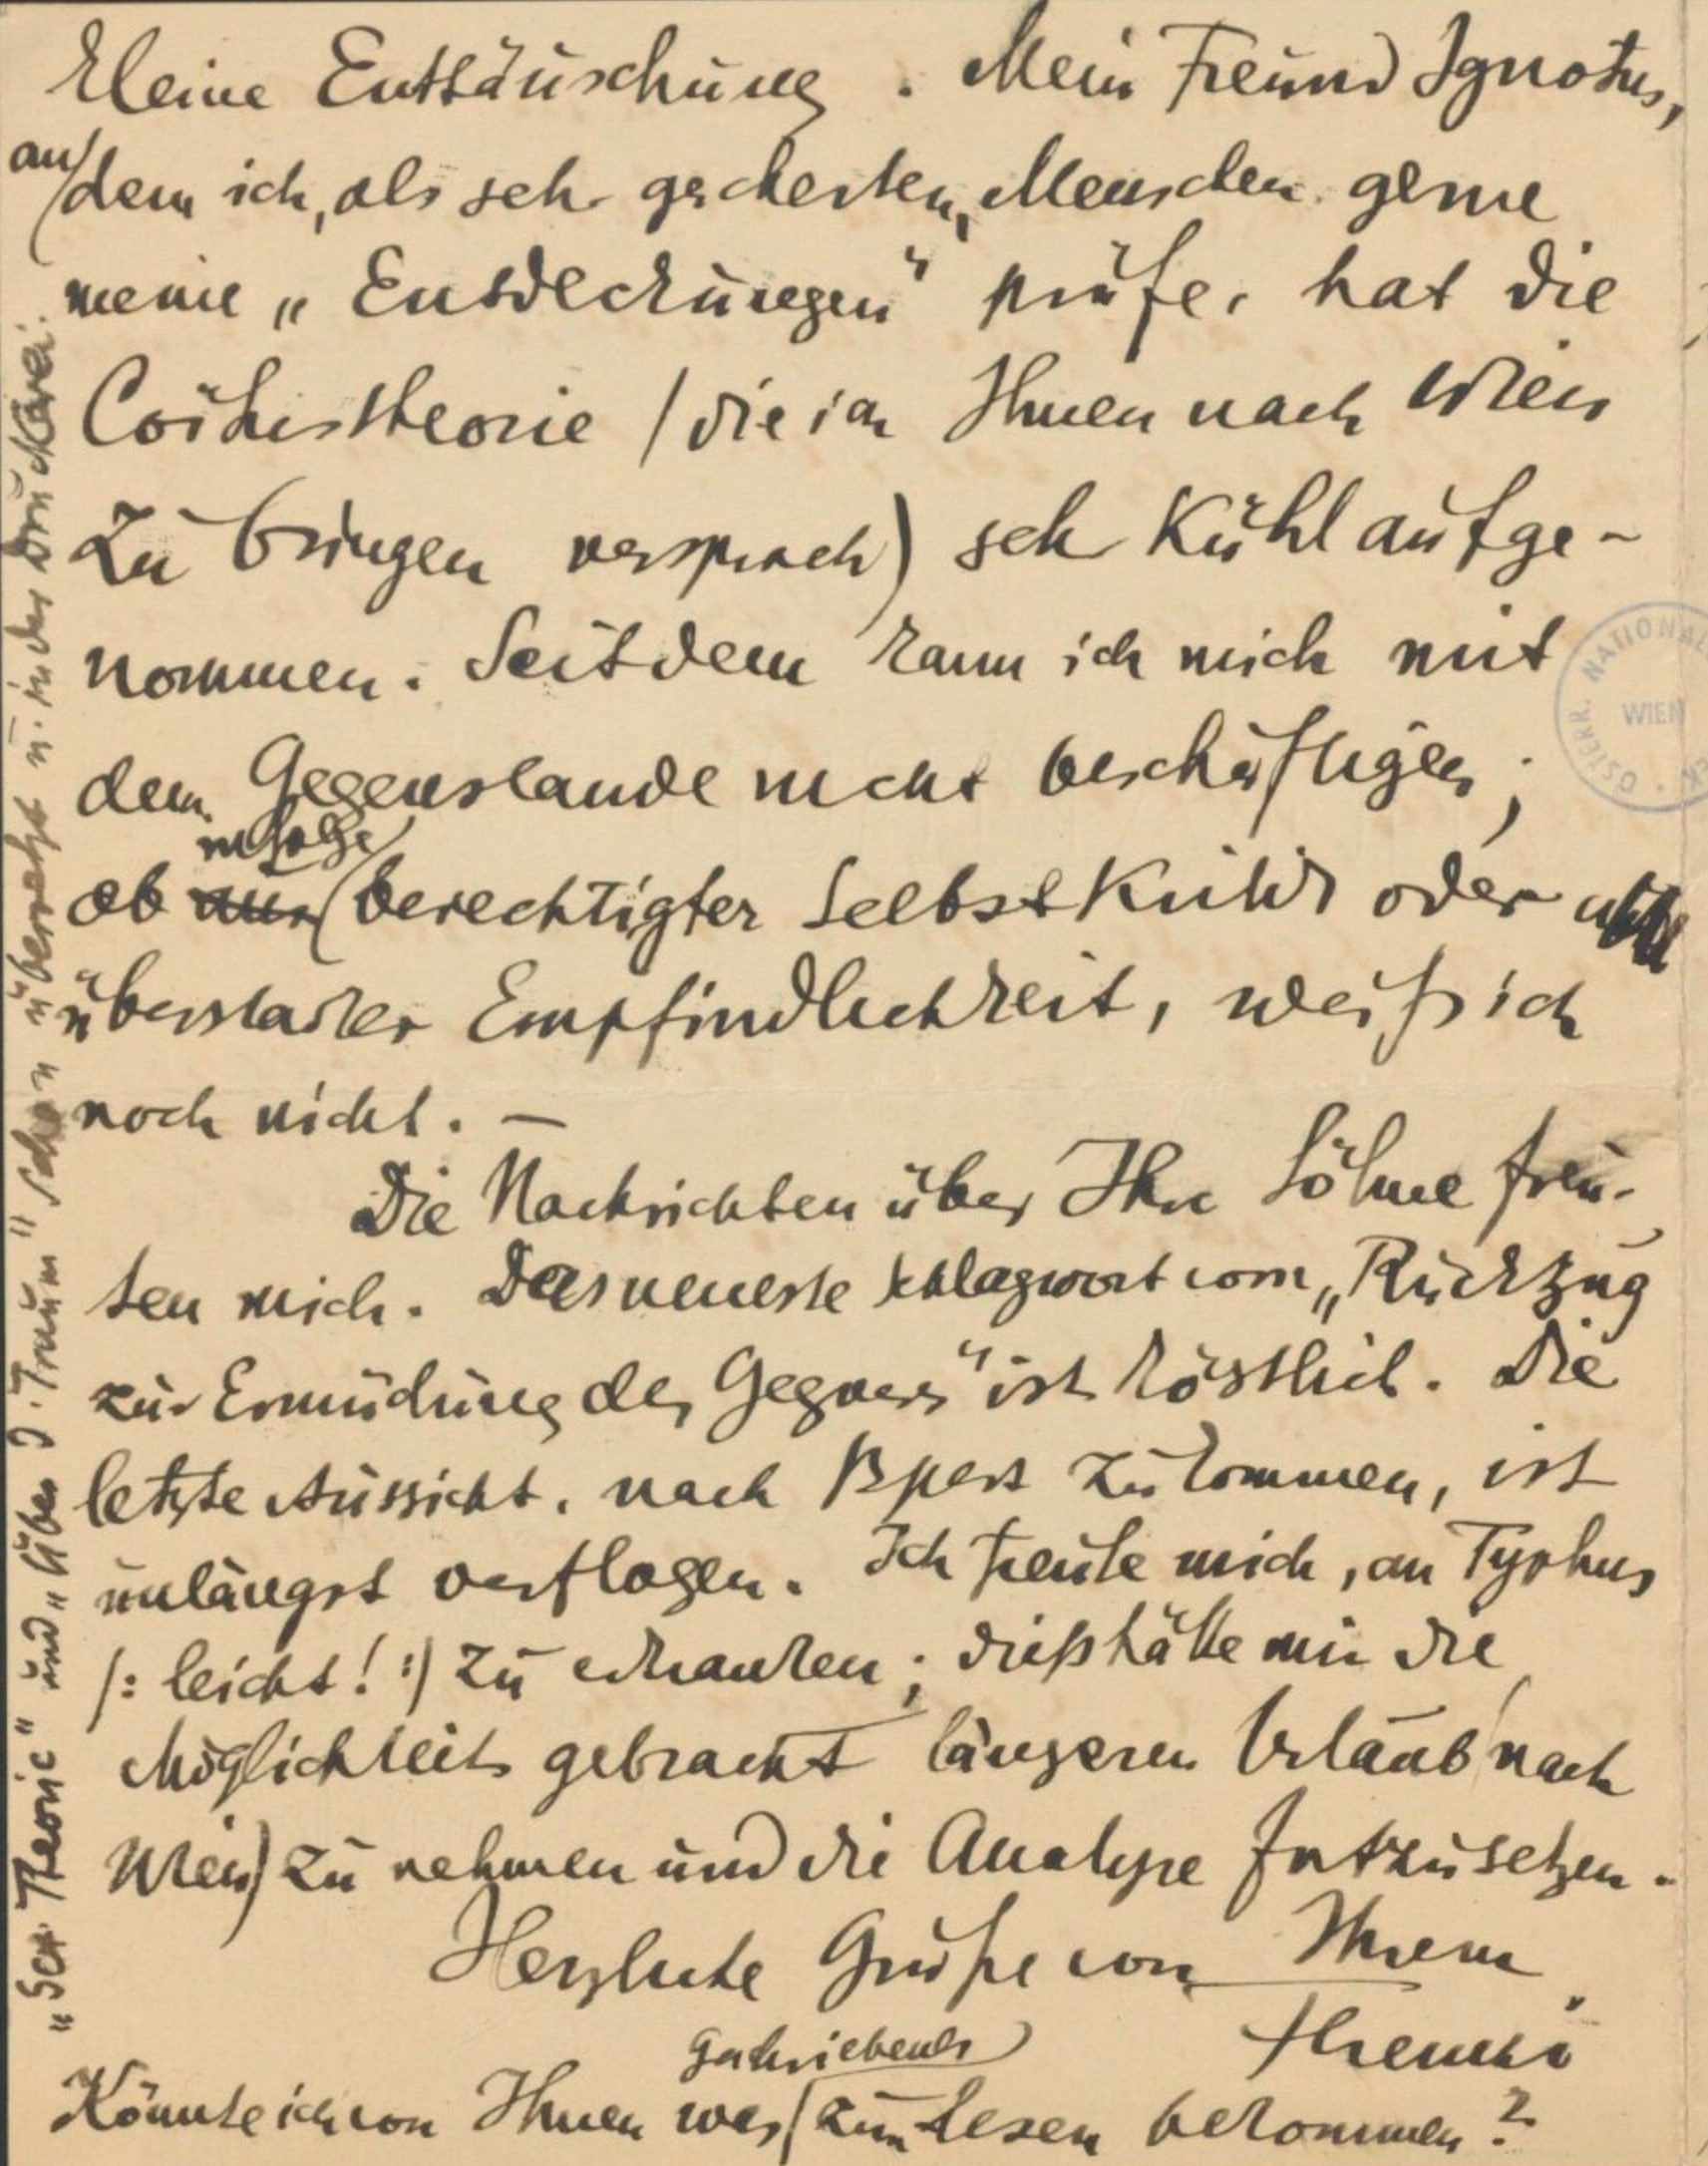 kleine Enttäuschung. Mein Freund Ignotus,
an
dem ich, als sehr gescheiten, Menschen gerne
meine „Entdeckungen“ prüfe, hat die
Coitustheorie /die ich Ihnen nach Wien
zu bringen versprach) sehr kühl aufge-
nommen. Seitdem kann ich mich mit
dem Gegenstande nicht beschäftigen;
infolge
ob aus berechtigter Selbstkritik oder
überstarker Empfindlichkeit, weiß ich
noch nicht. –
Die Nachrichten über Ihre Söhne freu-
ten mich. Das neueste Schlagwort vom „Rückzug
zur Ermüdung des Gegners“ ist köstlich. Die
letzte Aussicht, nach Bpest zu kommen, ist
unlängst verflogen. Ich freute mich, an Typhus
/: leicht! :/ zu erkranken; dieß hätte mir die
Möglichkeit gebracht längeren Urlaub /nach
Wien) zu nehmen und die Analyse fortzusetzen.
Herzliche Grüße von Ihrem
Ferenczi
geschriebenes
Könnte ich von Ihnen was zum Lesen bekommen?
„Sex. Theorie“ und „Über d. Traum“ schon übersetzt u. in der Druckerei.
ÖSTERR. NATIONAL
WIEN